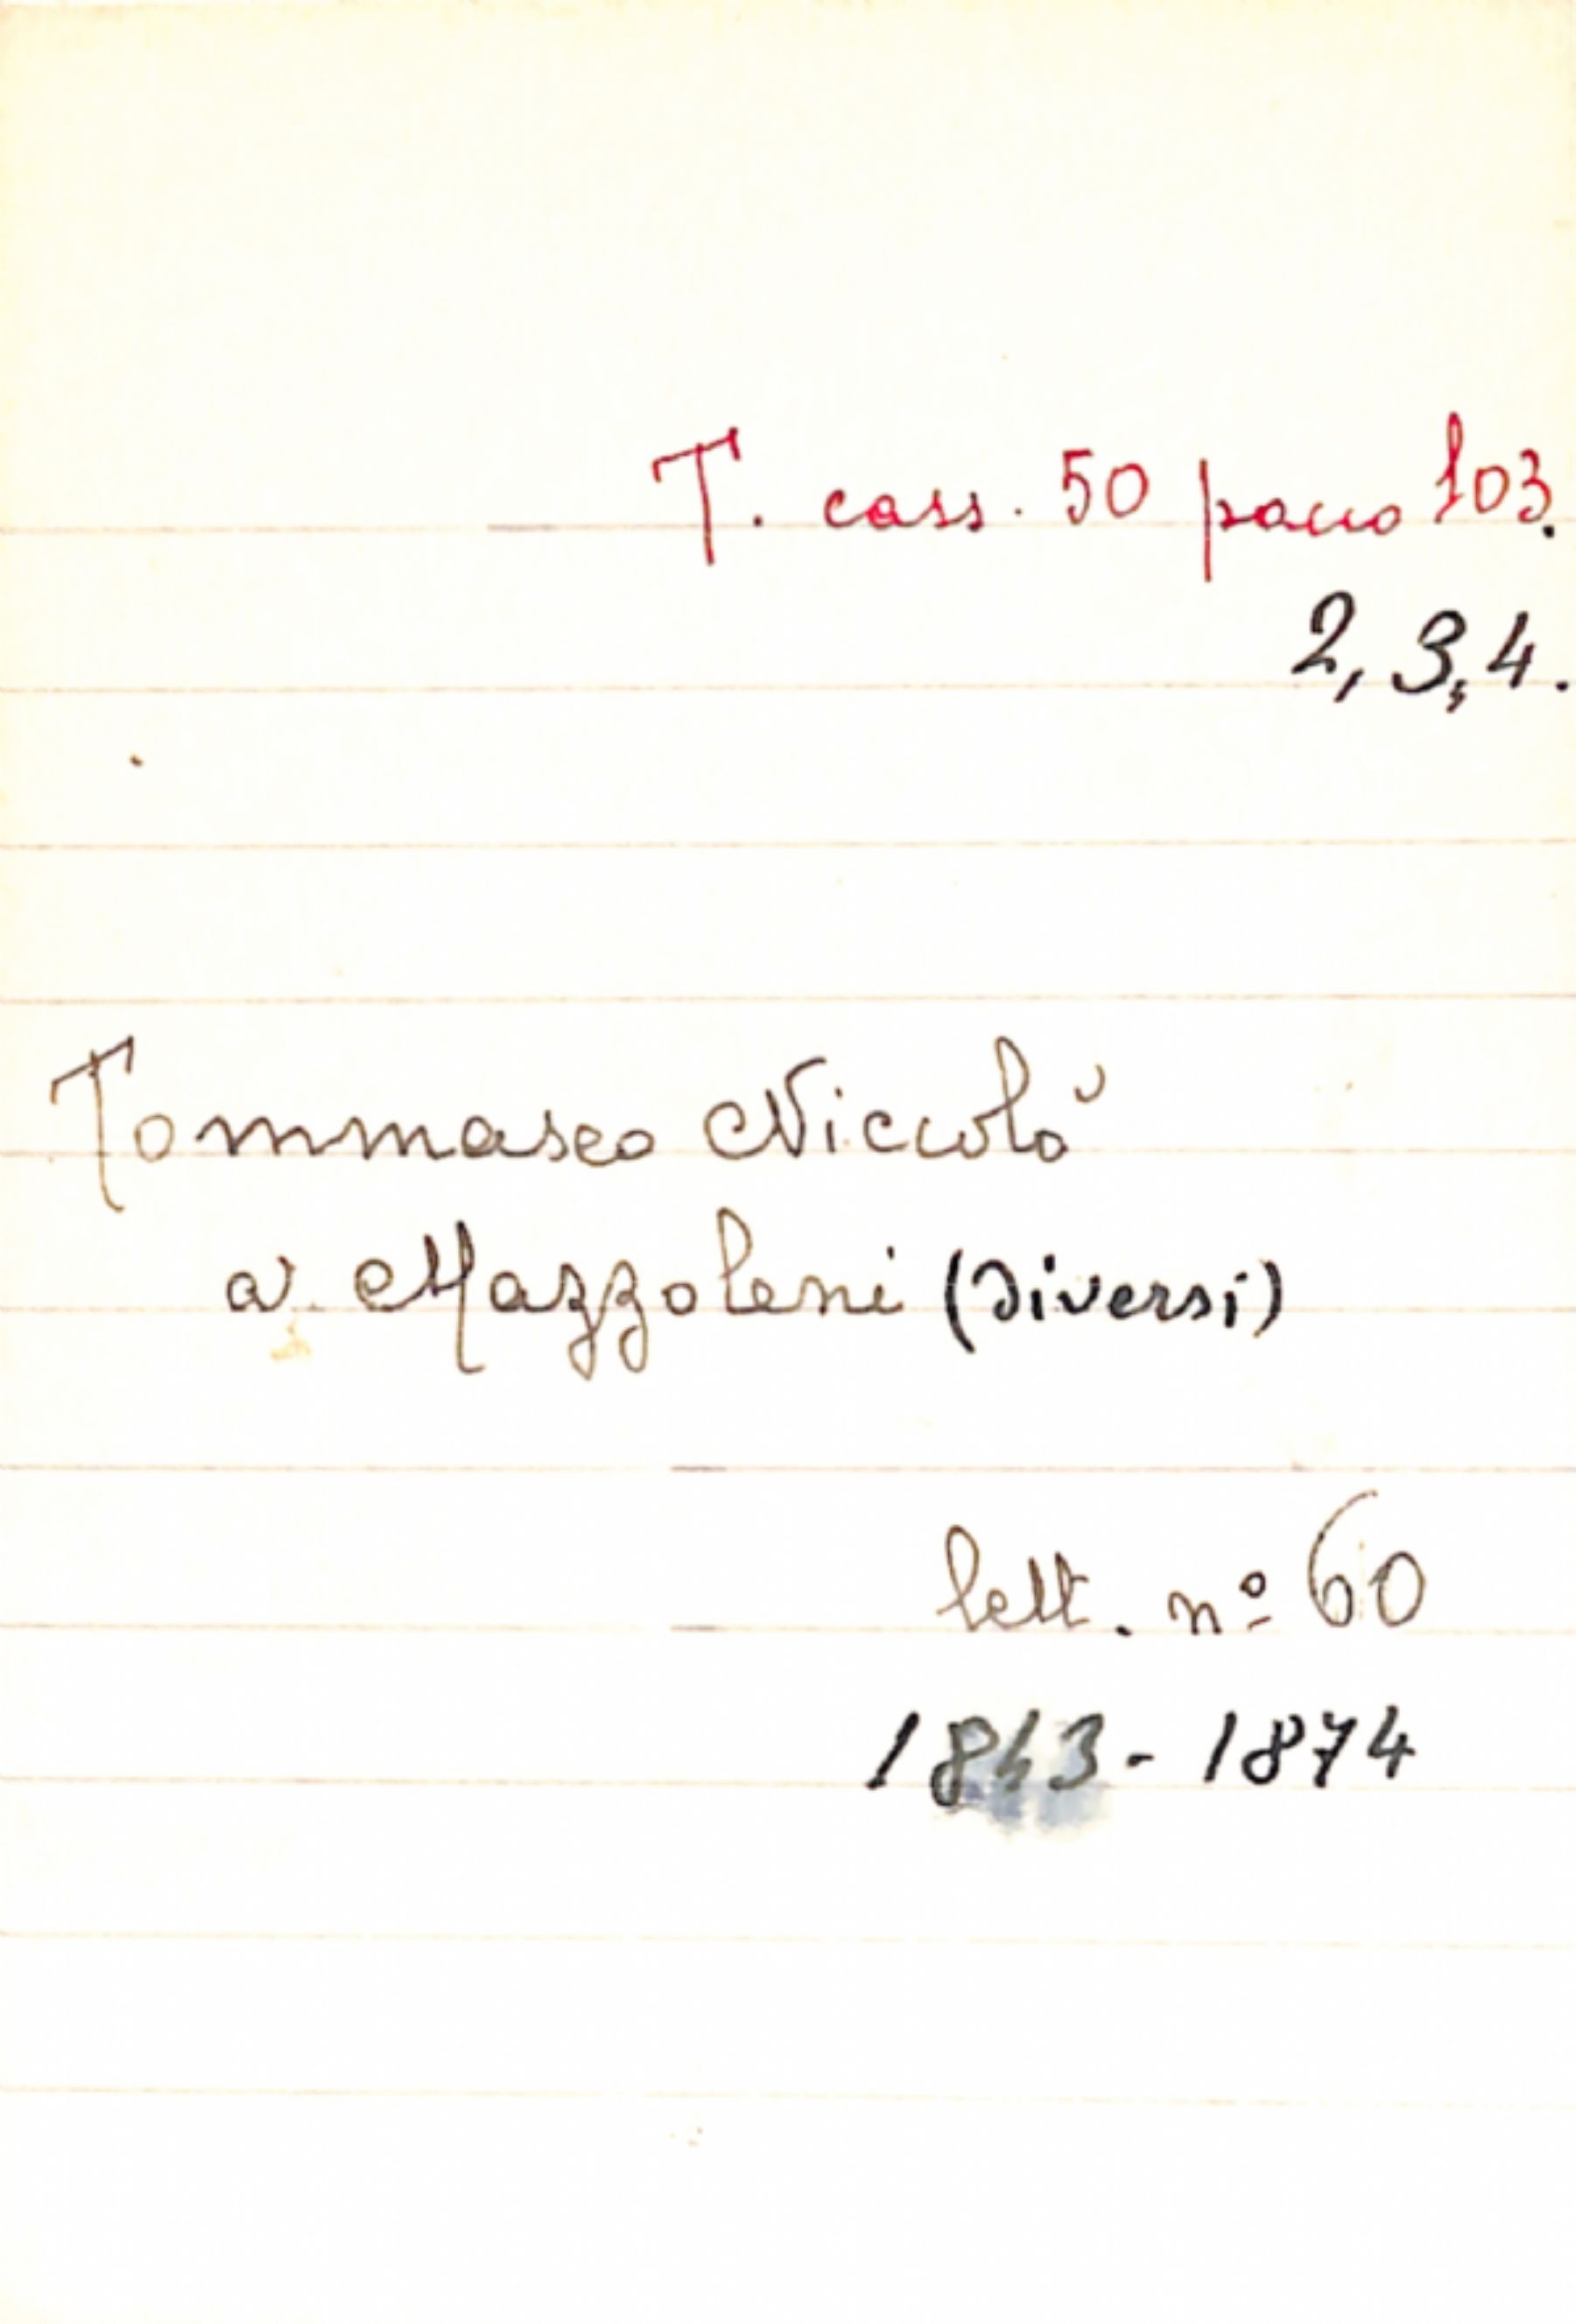 T. cass. 50 pacco 103.
2, 3, 4.
Tommaseo Niccolò
a Mazzoleni (Diversi)
lett. nº 60
1843 - 1874